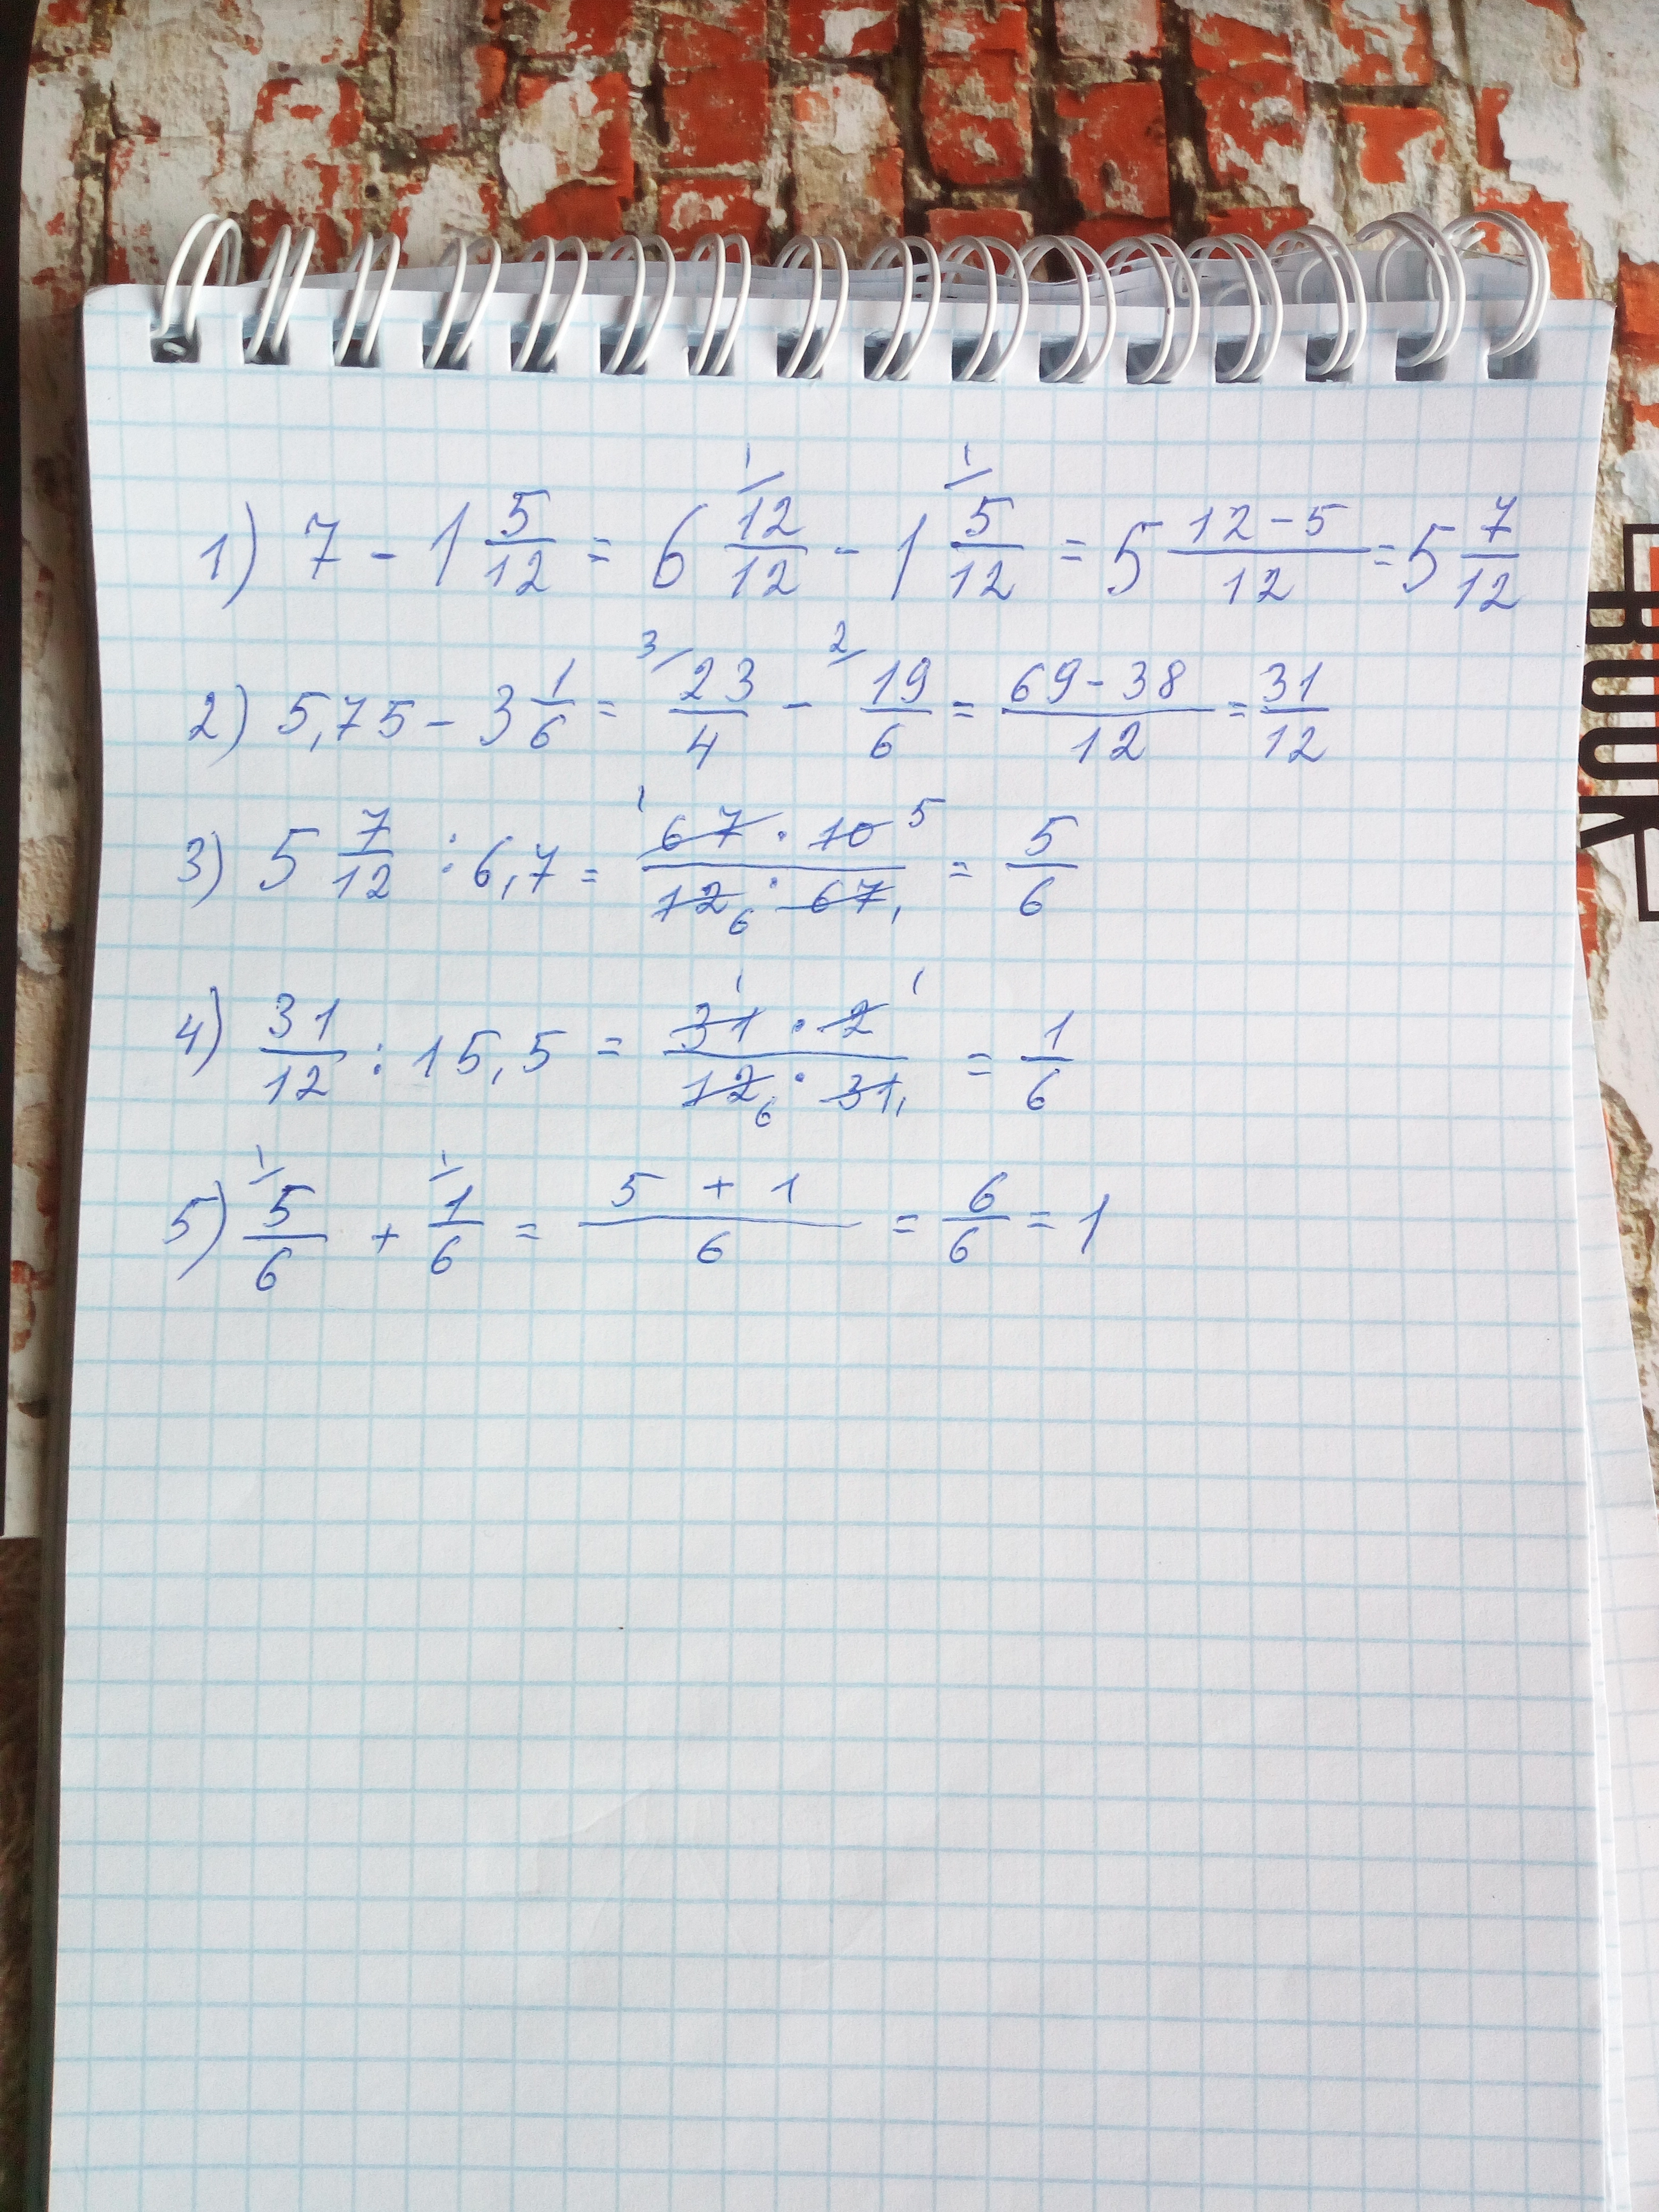 1) 7 - 1 5/12 = 6 12/12 - 1 5/12 = 5 (12-5)/12 = 5 7/12
2) 5,75 - 3 1/6 = 23/4 - 19/6 = (69-38)/12 = 31/12
3) 5 7/12 : 6,7 = (67 · 10)/(12 · 67) = 5/6
4) 31/12 : 15,5 = (31 · 2)/(12 · 31) = 1/6
5) 5/6 + 1/6 = (5 + 1)/6 = 6/6 = 1
BOOK